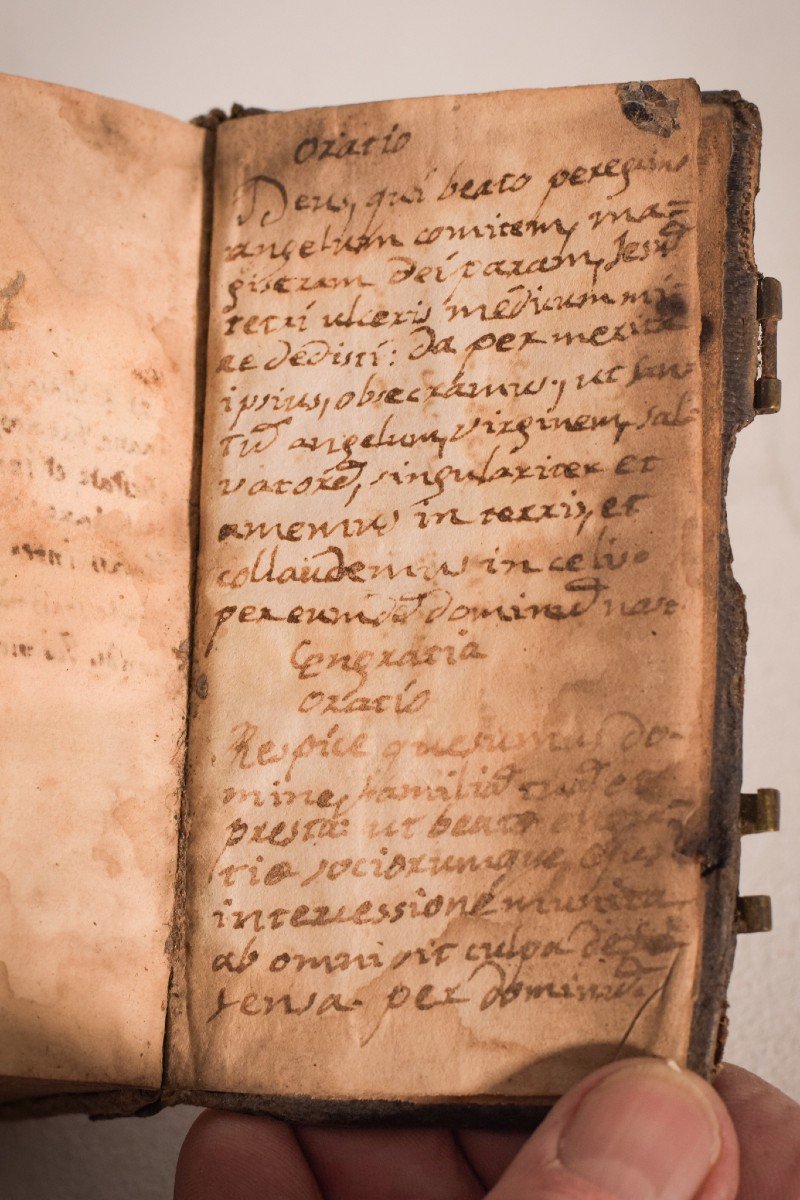 Oratio
Deus, qui beato peregrino
angelum comitem, ma=
gistram deiparam, Jesu᷃
tetri ulceris médicum mi
re dedisti: da per merita
ipsius, obsecramus, ut san
tu᷃ angelum, virginem, sal
vatore᷃, singulariter et
amemus in terris, et
collaudemus in celis.
per eumde᷃ dominu᷃ nost
Engratia
Oratio
Respice quesumus do-
mine, familia᷃ tua᷃ et
presta: ut beate engra=
tie sociorumque ejus
intercessione munita
ab omni sit culpa defe
fensa. per dominu᷃